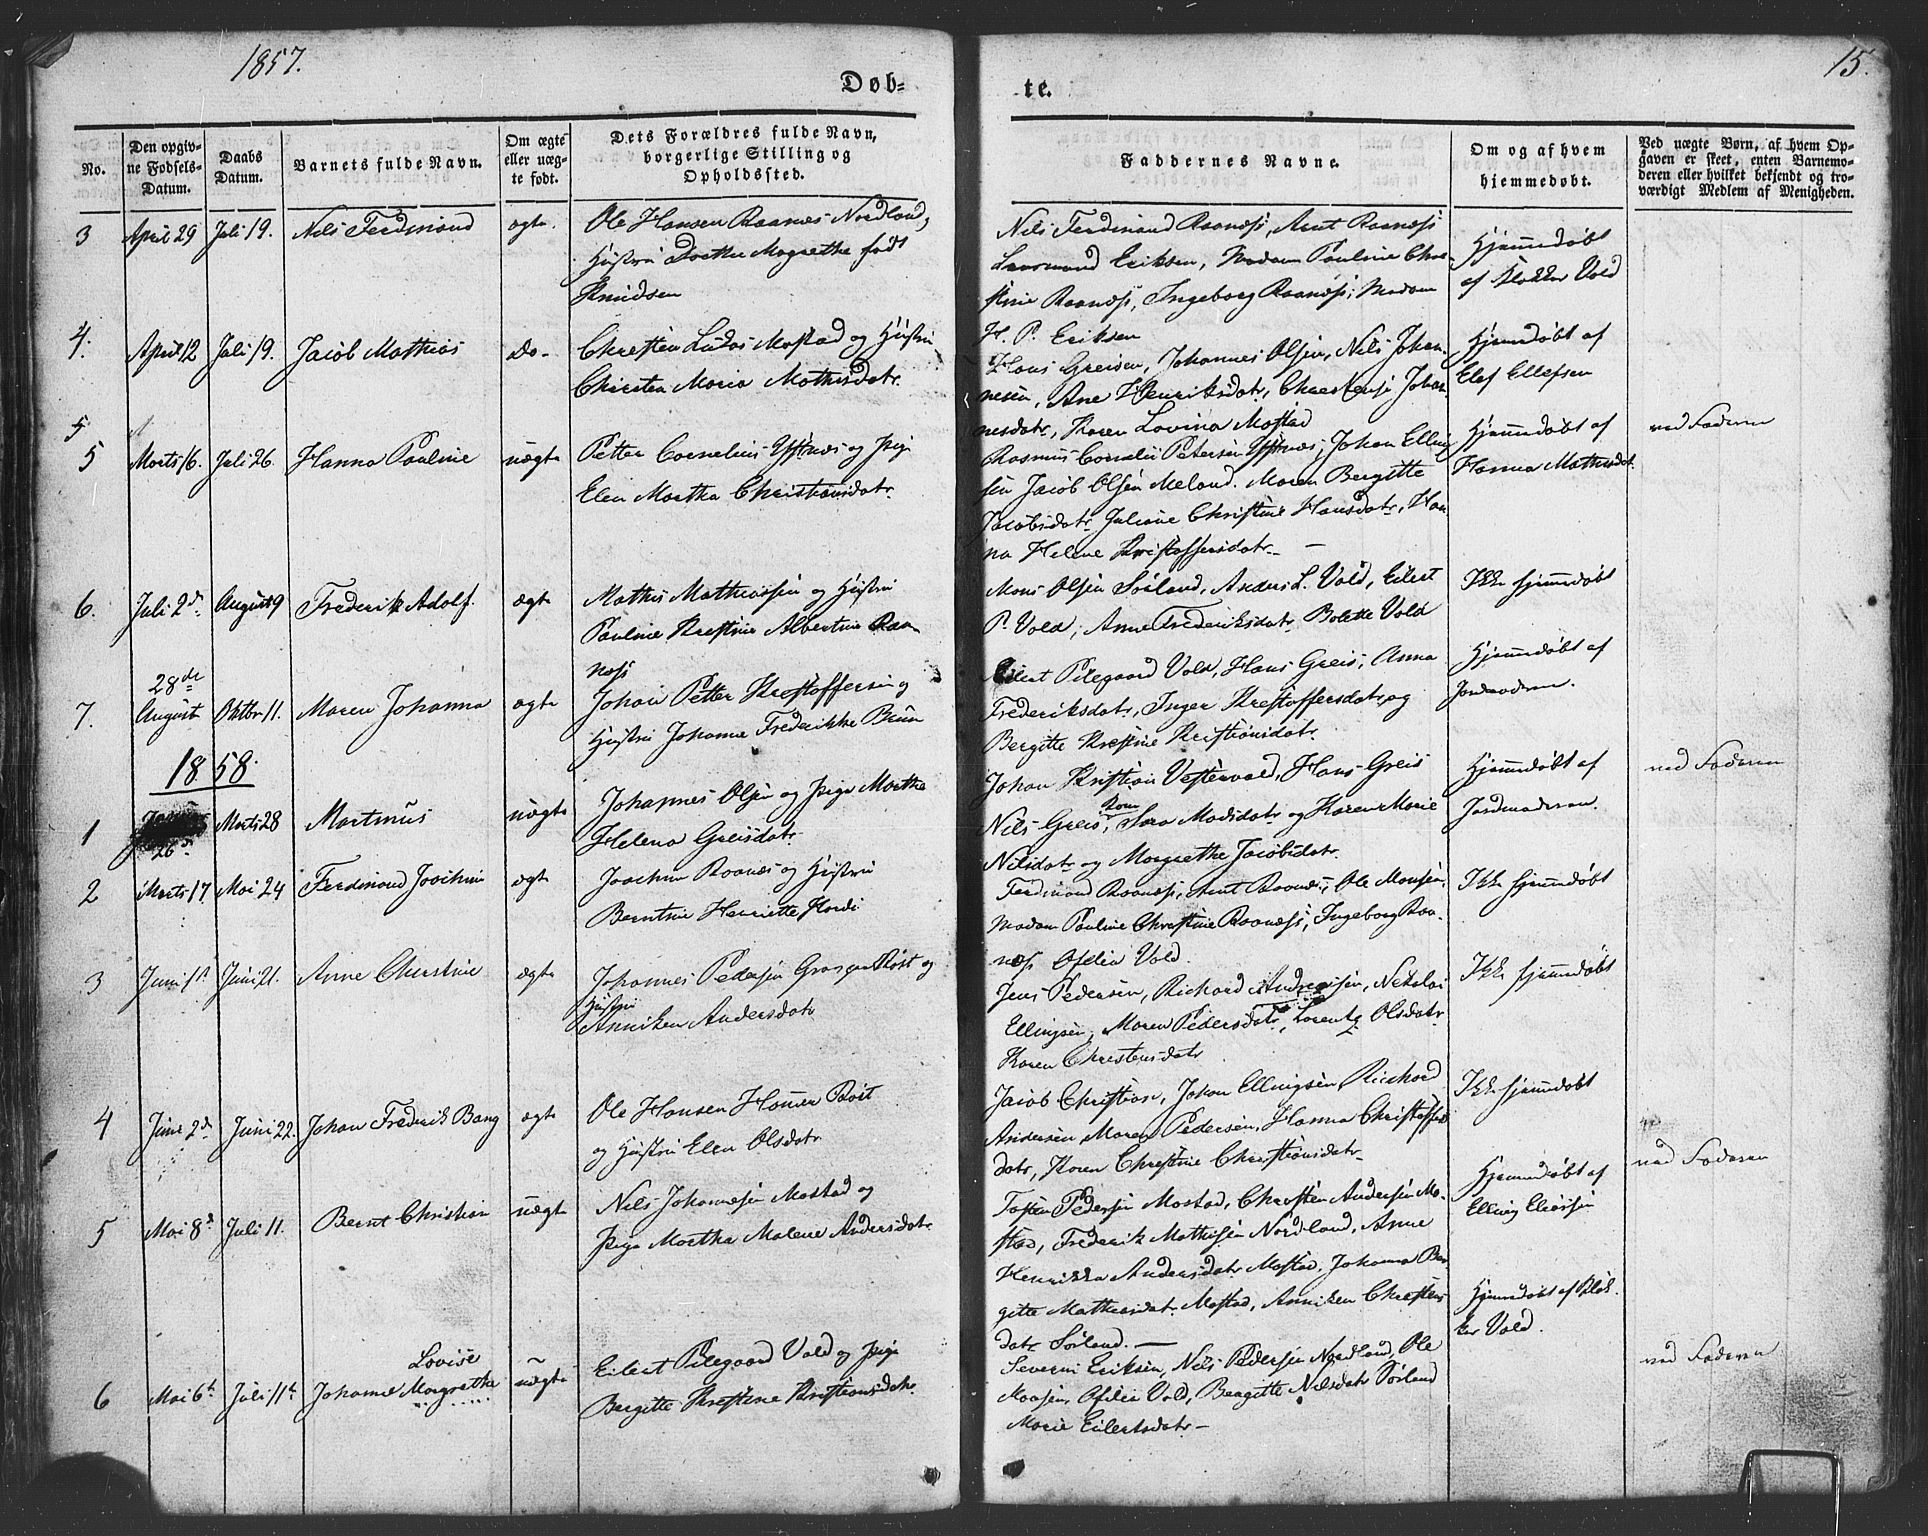 1857.
15.
Døb=
te.
No.
Den opgiv-
ne Fødsels-
Datum.
Daabs
Datum.
Barnets fulde Navn.
Om ægte
eller uæg-
te født.
Dets Forældres fulde Navn,
borgerlige Stilling og
Opholdssted.
Faddernes Navne.
Om og af hvem
hjemmedøbt.
Ved uægte Børn, af hvem Op-
gaven er skeet, enten Barnemo-
deren eller hvilket bekjendt og tro-
værdigt Medlem af Menigheden.
3 April 29 Juli 19. Nils Ferdinand ægte.
Ole Hansen Raanæs Nordland,
Hustru Dorthe Magrethe født
Knudsen
Nils Ferdinand Raanæs, Arnt Raanæs
Eriksen, Madam Pauline Chri-
stine Raanæs, Ingeborg Raanæs, Madam
H. P. Eriksen
Hjemmedøbt
af Klokker Vold
4. April 12 Juli 19. Jacob Mathias do-
Christen Lucas Mostad og Hustru
Chirsten Maria Mathisdatr.
Hans Greisen, Johannes Olsen, Nils Johan-
nesen, Ane Henriksdatr, Johan-
nesdatr, Karen Lovina Mostad
Hjemmedøbt af
Elef Ellefsen
5
5 Marts 16. Juli 26. Hanna Pauline uægte
Petter Cornelius Yttnæs og Pige
Elen Martha Christiansdatr.
Rasmus Cornelii Petersen Yttnæs, Johan Elling
sen Jacob Olsen Meland. Maren Bergitte
Jacobsdatr Juliane Christine Hansdatr, Han-
na Helene Kristoffersdatr. —
Hjemmedøbt af
Hanna Mathisdatr.
ved Faderen
6. Juli 2d August 9 Frederik Adolf. ægte
Mathis Mathiassen og Hustru
Pauline Krestine Albertine Raa-
næs
Mons Olsen Sørland, Anders L. Vold, Eilert
P. Vold, Anne Frederiksdatr, Bolette Vold
Ikke hjemmedøbt
7. 28de
August Oktbr 11. Maren Johanna ægte
Johan Petter Krestoffersen og
Hustru Johanne Frederikke Brun
Eilert Pilegaard Vold, Hans Greis, Anna
Frederiksdatr, Inger Krestoffersdatr og
Bergitte Krestine Kristiansdatr
Hjemmedøbt af
Jordmoderen.
1858.
1 26de Marts 28 Martinus uægte
Johannes Olsen og Pige Martha
Helena Greisdatr.
Johan Kristian Vestervold, Hans Greis
Nils Greis, Sara Madsdatr og Karen Marie
Nilsdatr og Margrethe Jacobsdatr.
Hjemmedøbt af
Jordmoderen.
ved Faderen
2 Marts 17 Mai 24 Ferdinand Joachim ægte
Joachim Raanæs og Hustru
Berntine Henriette
Ferdinand Raanæs, Arnt Raanæs, Ole Monsen,
Madam Pauline Christine Raanæs, Ingeborg Raa-
næs Ofelia Vold.
Ikke hjemmedøbt
3 Juni 1st Juni 21. Anne Christine ægte
Johannes Pedersen Røst og
Hustru
Anniken Andersdatr
Jens Pedersen, Richard Andreasen, Nikolai
Ellingsen, Maren Pedersdatr, Lorentz Olsdatr
Karen Christensdatr
Ikke hjemmedøbt
4 Juni 2d Juni 22. Johan Frederik Bang ægte
Ole Hansen Røst
og Hustru Elen Olsdatr
Jacob Christian, Johan Ellingsen, Richard
Andersen, Maren Pedersen, Hanna Christoffers
datr, Karen Christine Christiansdatr.
Ikke hjemmedøbt
5 Mai 8d Juli 11. Bernt Christian uægte
Nils Johannesen Mostad og
Pige Martha Malene Andersdatr
Pedersen Mostad, Christen Andersen Mo-
stad, Frederik Mathisen Nordland, Anne
Henrikka Andersdatr Mostad, Johanna Ber-
gitte Mathiasdatr Mostad, Anniken Christens
datr Sørland. —
Hjemmedøbt af
Elling Eliasen
ved Faderen
6 Mai 6t Juli 11t Lovise
Johanne Magrethe uægte
Eilert Pilegaard Vold og Pige
Bergitte Krestine Kristiansdatr.
Severin Eriksen, Nils Pedersen Nordland, Ole
Monsen, Ofelia Vold, Bergitte Nilsdatr Sørland
Marie Eilertsdatr —
Hjemmedøbt af Klok-
ker Vold.
ved Faderen